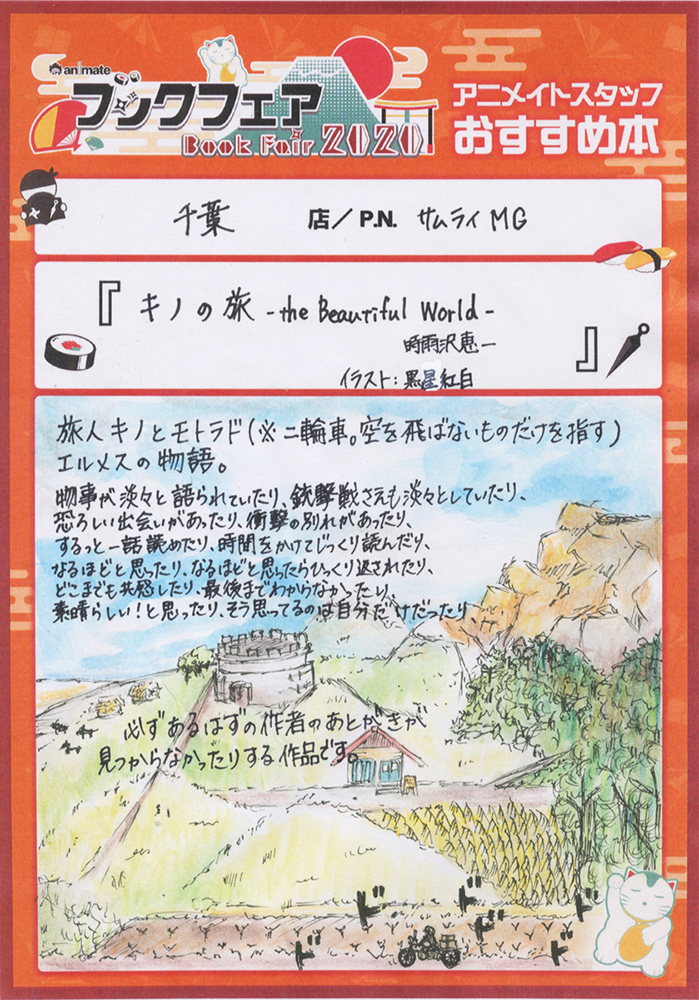 animate
ブックフェア
Book Fair 2020
アニメイトスタッフ
おすすめ本
千葉 店／P.N. サムライMG
『キノの旅 -the Beautiful World-
時雨沢恵一
』
イラスト:黒星紅白
旅人キノとモトラド(※二輪車。空を飛ばないものだけを指す)
エルメスの物語。
物事が淡々と語られていたり、銃撃戦さえも淡々としていたり、
恐ろしい出会いがあったり、衝撃の別れがあったり、
するっと一話読めたり、時間をかけてじっくり読んだり、
なるほどと思ったり、なるほどと思ったらひっくり返されたり、
どこまでも共感したり、最後までわからなかったり、
素晴らしい!と思ったり、そう思ってるのは自分だけだったり、
必ずあるはずの作者のあとがきが
見つからなかったりする作品です。
ド ド ド ド ド